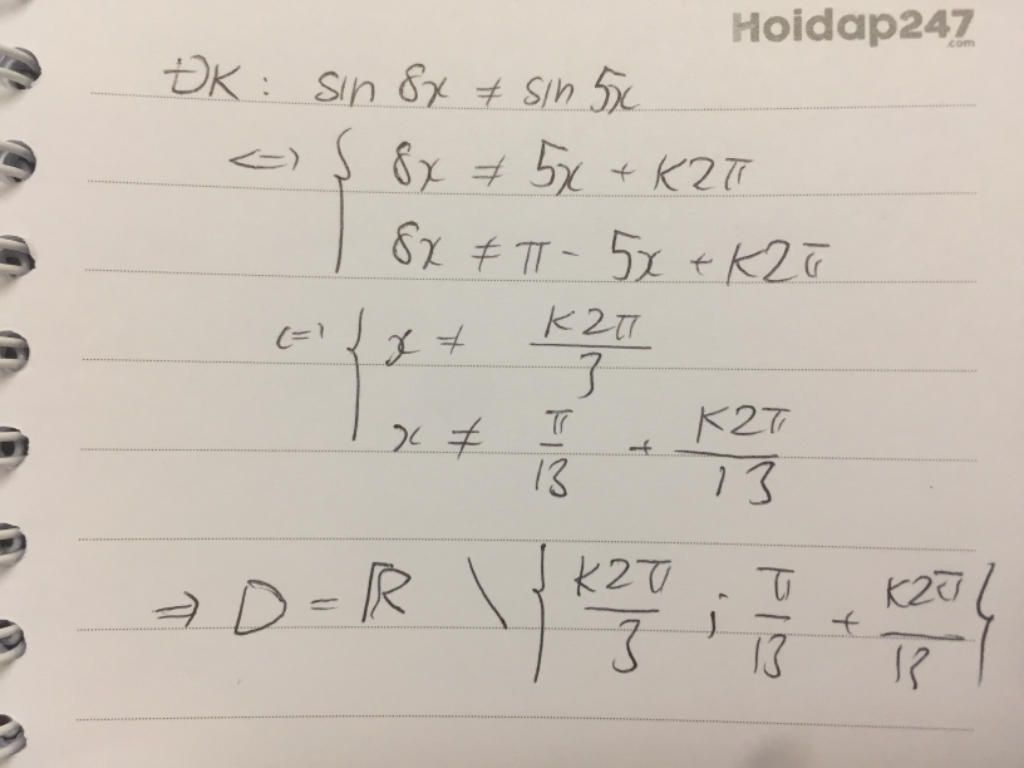 Hoidap247
.com
ĐK: sin 8x ≠ sin 5x
<=> { 8x ≠ 5x + K2π
8x ≠ π - 5x + K2π
<=> { x ≠ K2π/3
x ≠ π/13 + K2π/13
=> D = ℝ \ { K2π/3 ; π/13 + K2π/13 }